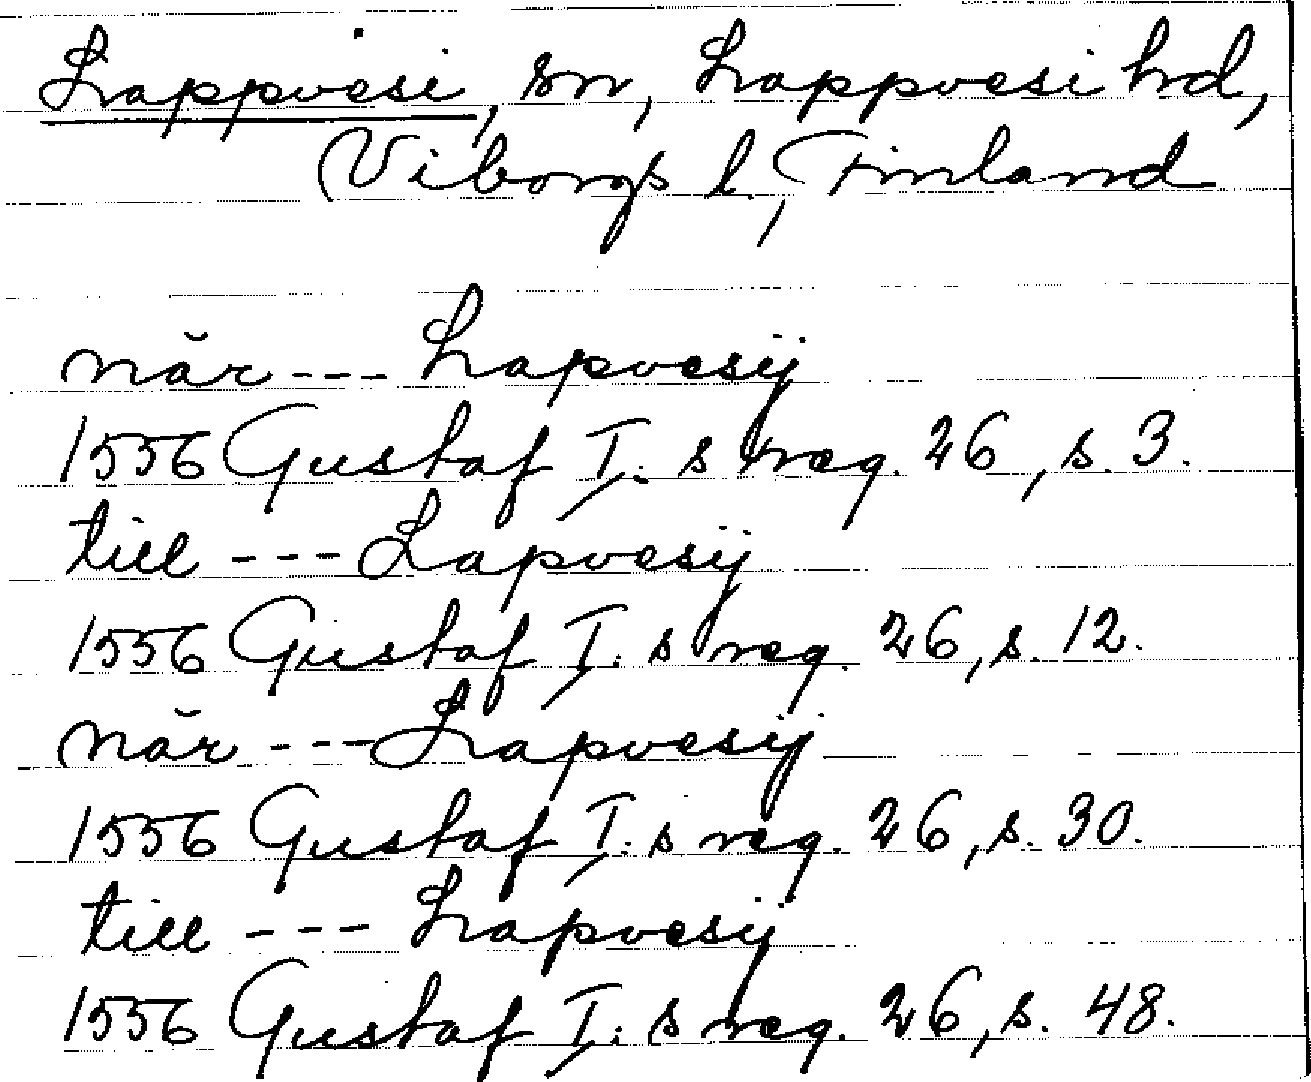 Lappvesi, sn, Lappvesi hd,
Viborgs l, Finland
når --- Lapvesij
1556 Gustaf I:s reg. 26, s. 3.
till --- Lapvesij
1556 Gustaf I:s reg. 26, s. 12.
når --- Lapvesij
1556 Gustaf I:s reg. 26, s. 30.
till --- Lapvesij
1556 Gustaf I:s reg. 26, s. 48.